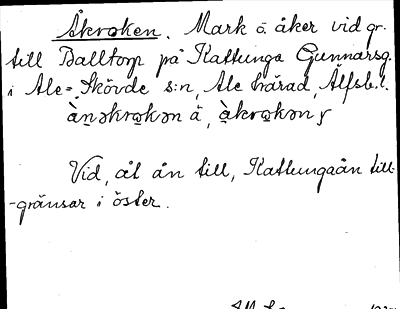 Åkroken. Mark o. åker vid gr.
till Balltorp på Kattunga Gunnarsg.
i Ale-Skövde s:n, Ale härad, Älfsb. l.
å̀n̥əkro̥kən å, å̀kro̥kən
Vid, ål ån till, Kattungaån till-
-gränsar i öster.